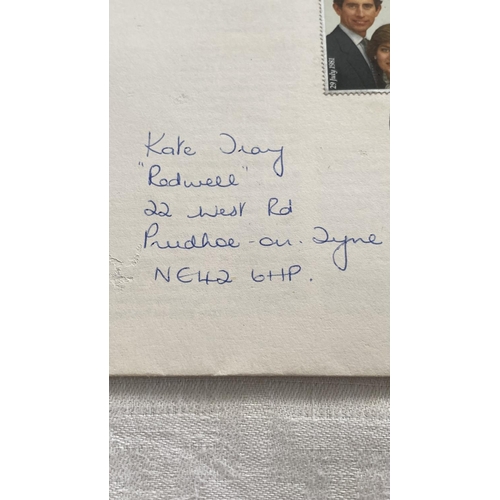 29 July 1981
Kate Tray
"Rodwell"
22 West Rd
Prudhoe-on-Tyne
NE42 6HP.